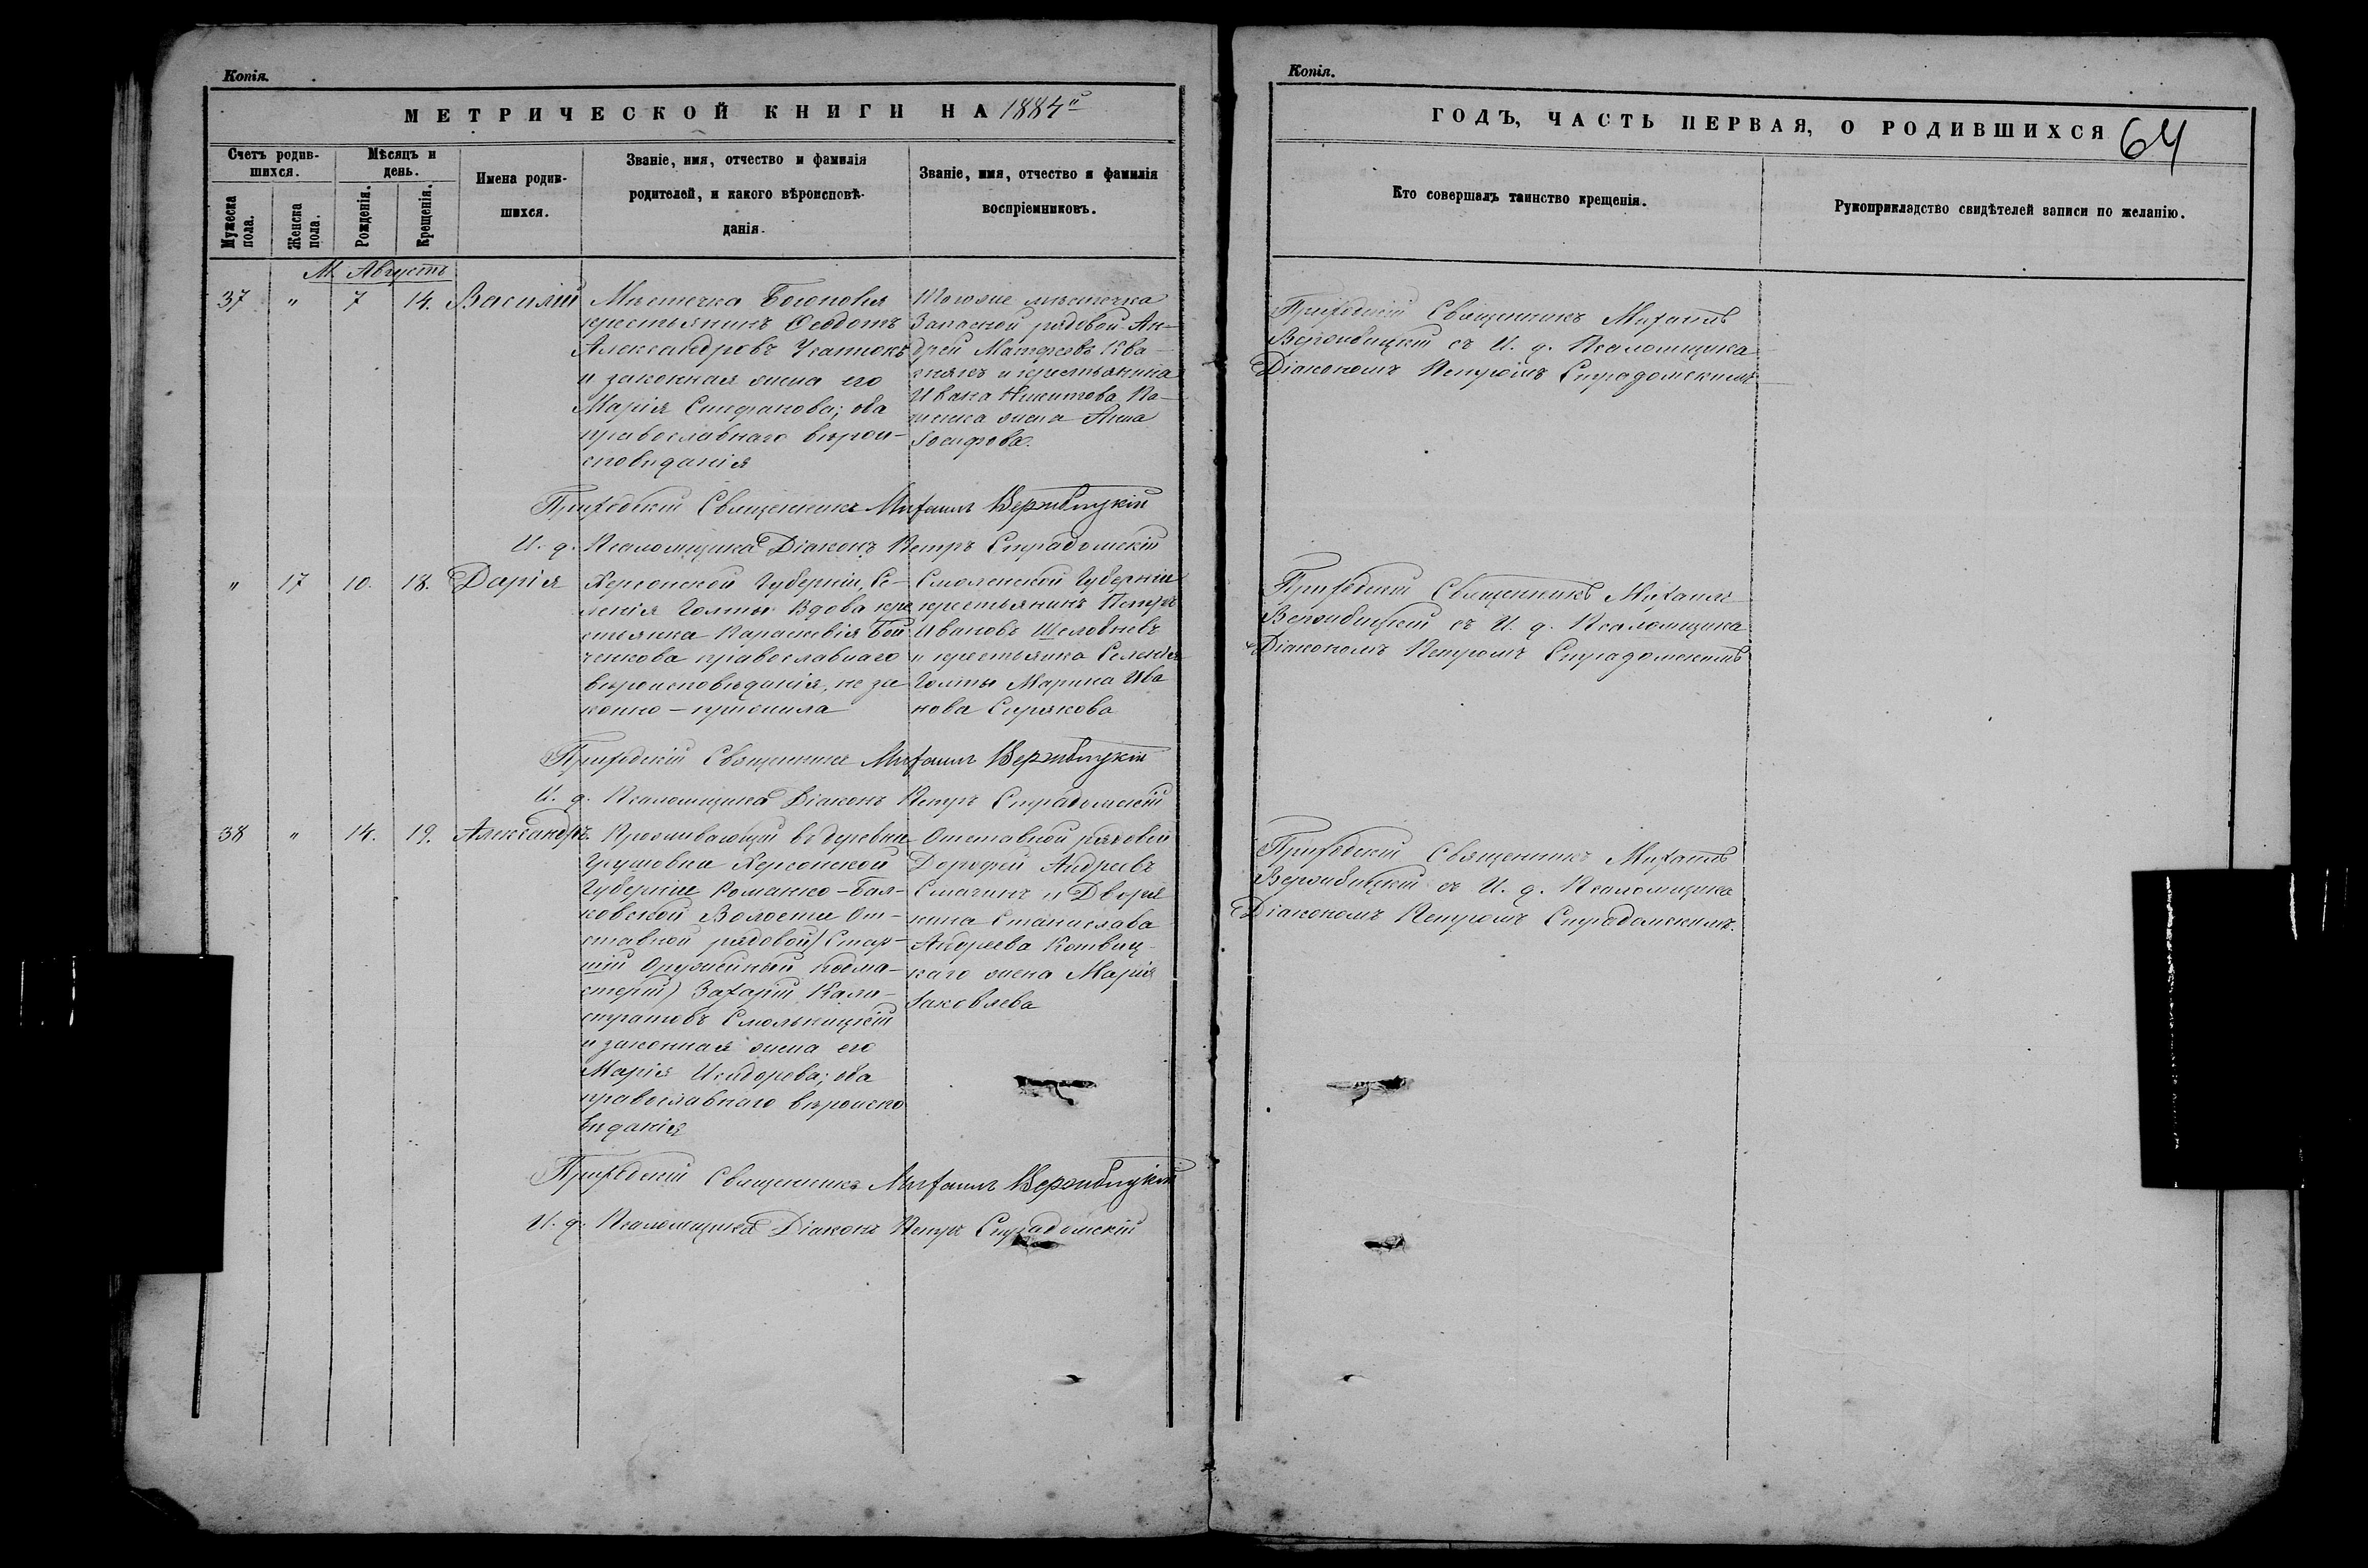 Копія.
МЕТРИЧЕСКОЙ КНИГИ НА 1884й
Счетъ родив-
шихся.
Мужеска
пола.
Женска
пола.
Мѣсяцъ и
день.
Рожденія.
Крещенія.
Имена родив-
шихся.
Званіе, имя, отчество и фамилія
родителей, и какого вѣроисповѣ-
данія.
Званіе, имя, отчество и фамилія
воспріемниковъ.
М. Августъ
37 " 7 14. Василій
Мѣстечка
крестьянинъ Ѳеодотъ
Александровъ
и законная жена его
Марія Стефанова; оба
православнаго вѣрои-
сповѣданія
Тогоже мѣстечка
Запасной рядовой Ан-
дрей Матѳеевъ Ква-
и крестьянина
Ивана Никитова
жена Анна
Іосифова.
Приходскій Священникъ Михаилъ Вержбицкій
И. д. Псаломщика Діаконъ Петръ Страдомскій
" 17 10. 18. Дарія
Херсонской Губерніи, Се-
ленія Голты Вдова кре
стьянка Параскевія Бой
ченкова православнаго
вѣроисповѣданія, не за
конно-прижила
Смоленской Губерніи
крестьянинъ Петръ
Ивановъ Шеловневъ
и крестьянка Селенія
Голты Марина Ива
нова Сирякова
Приходскій Священникъ Михаилъ Вержбицкій
И. д. Псаломщика Діаконъ Петръ Страдомскій
38 " 14. 19. Александръ.
Проживающій въ деревнѣ
Херсонской
Губерніи Романко-Бал-
ковской Волости От-
ставной рядовой (Стар-
шій Оружейный
Захарій Кали-
стратовъ Смольницкій
и законная жена его
Марія Исидорова; оба
православнаго вѣроиспо
вѣданія
Отставной рядовой
Дорофей Андреевъ
Смагинъ и Дворя
нина Станислава
Андреева Котвиц-
каго жена Марія
Яковлева
Приходскій Священникъ Михаилъ Вержбицкій
И. д. Псаломщика Діаконъ Петръ Страдомскій
Копія.
ГОДЪ, ЧАСТЬ ПЕРВАЯ, О РОДИВШИХСЯ 64
Кто совершалъ таинство крещенія.
Рукоприкладство свидѣтелей записи по желанію.
Приходскій Священникъ Михаилъ
Вержбицкій съ И. д. Псаломщика
Діакономъ Петромъ Страдомскимъ
Приходскій Священникъ Михаилъ
Вержбицкій съ И. д. Псаломщика
Діакономъ Петромъ Страдомскимъ
Приходскій Священникъ Михаилъ
Вержбицкій съ И. д. Псаломщика
Діакономъ Петромъ Страдомскимъ.